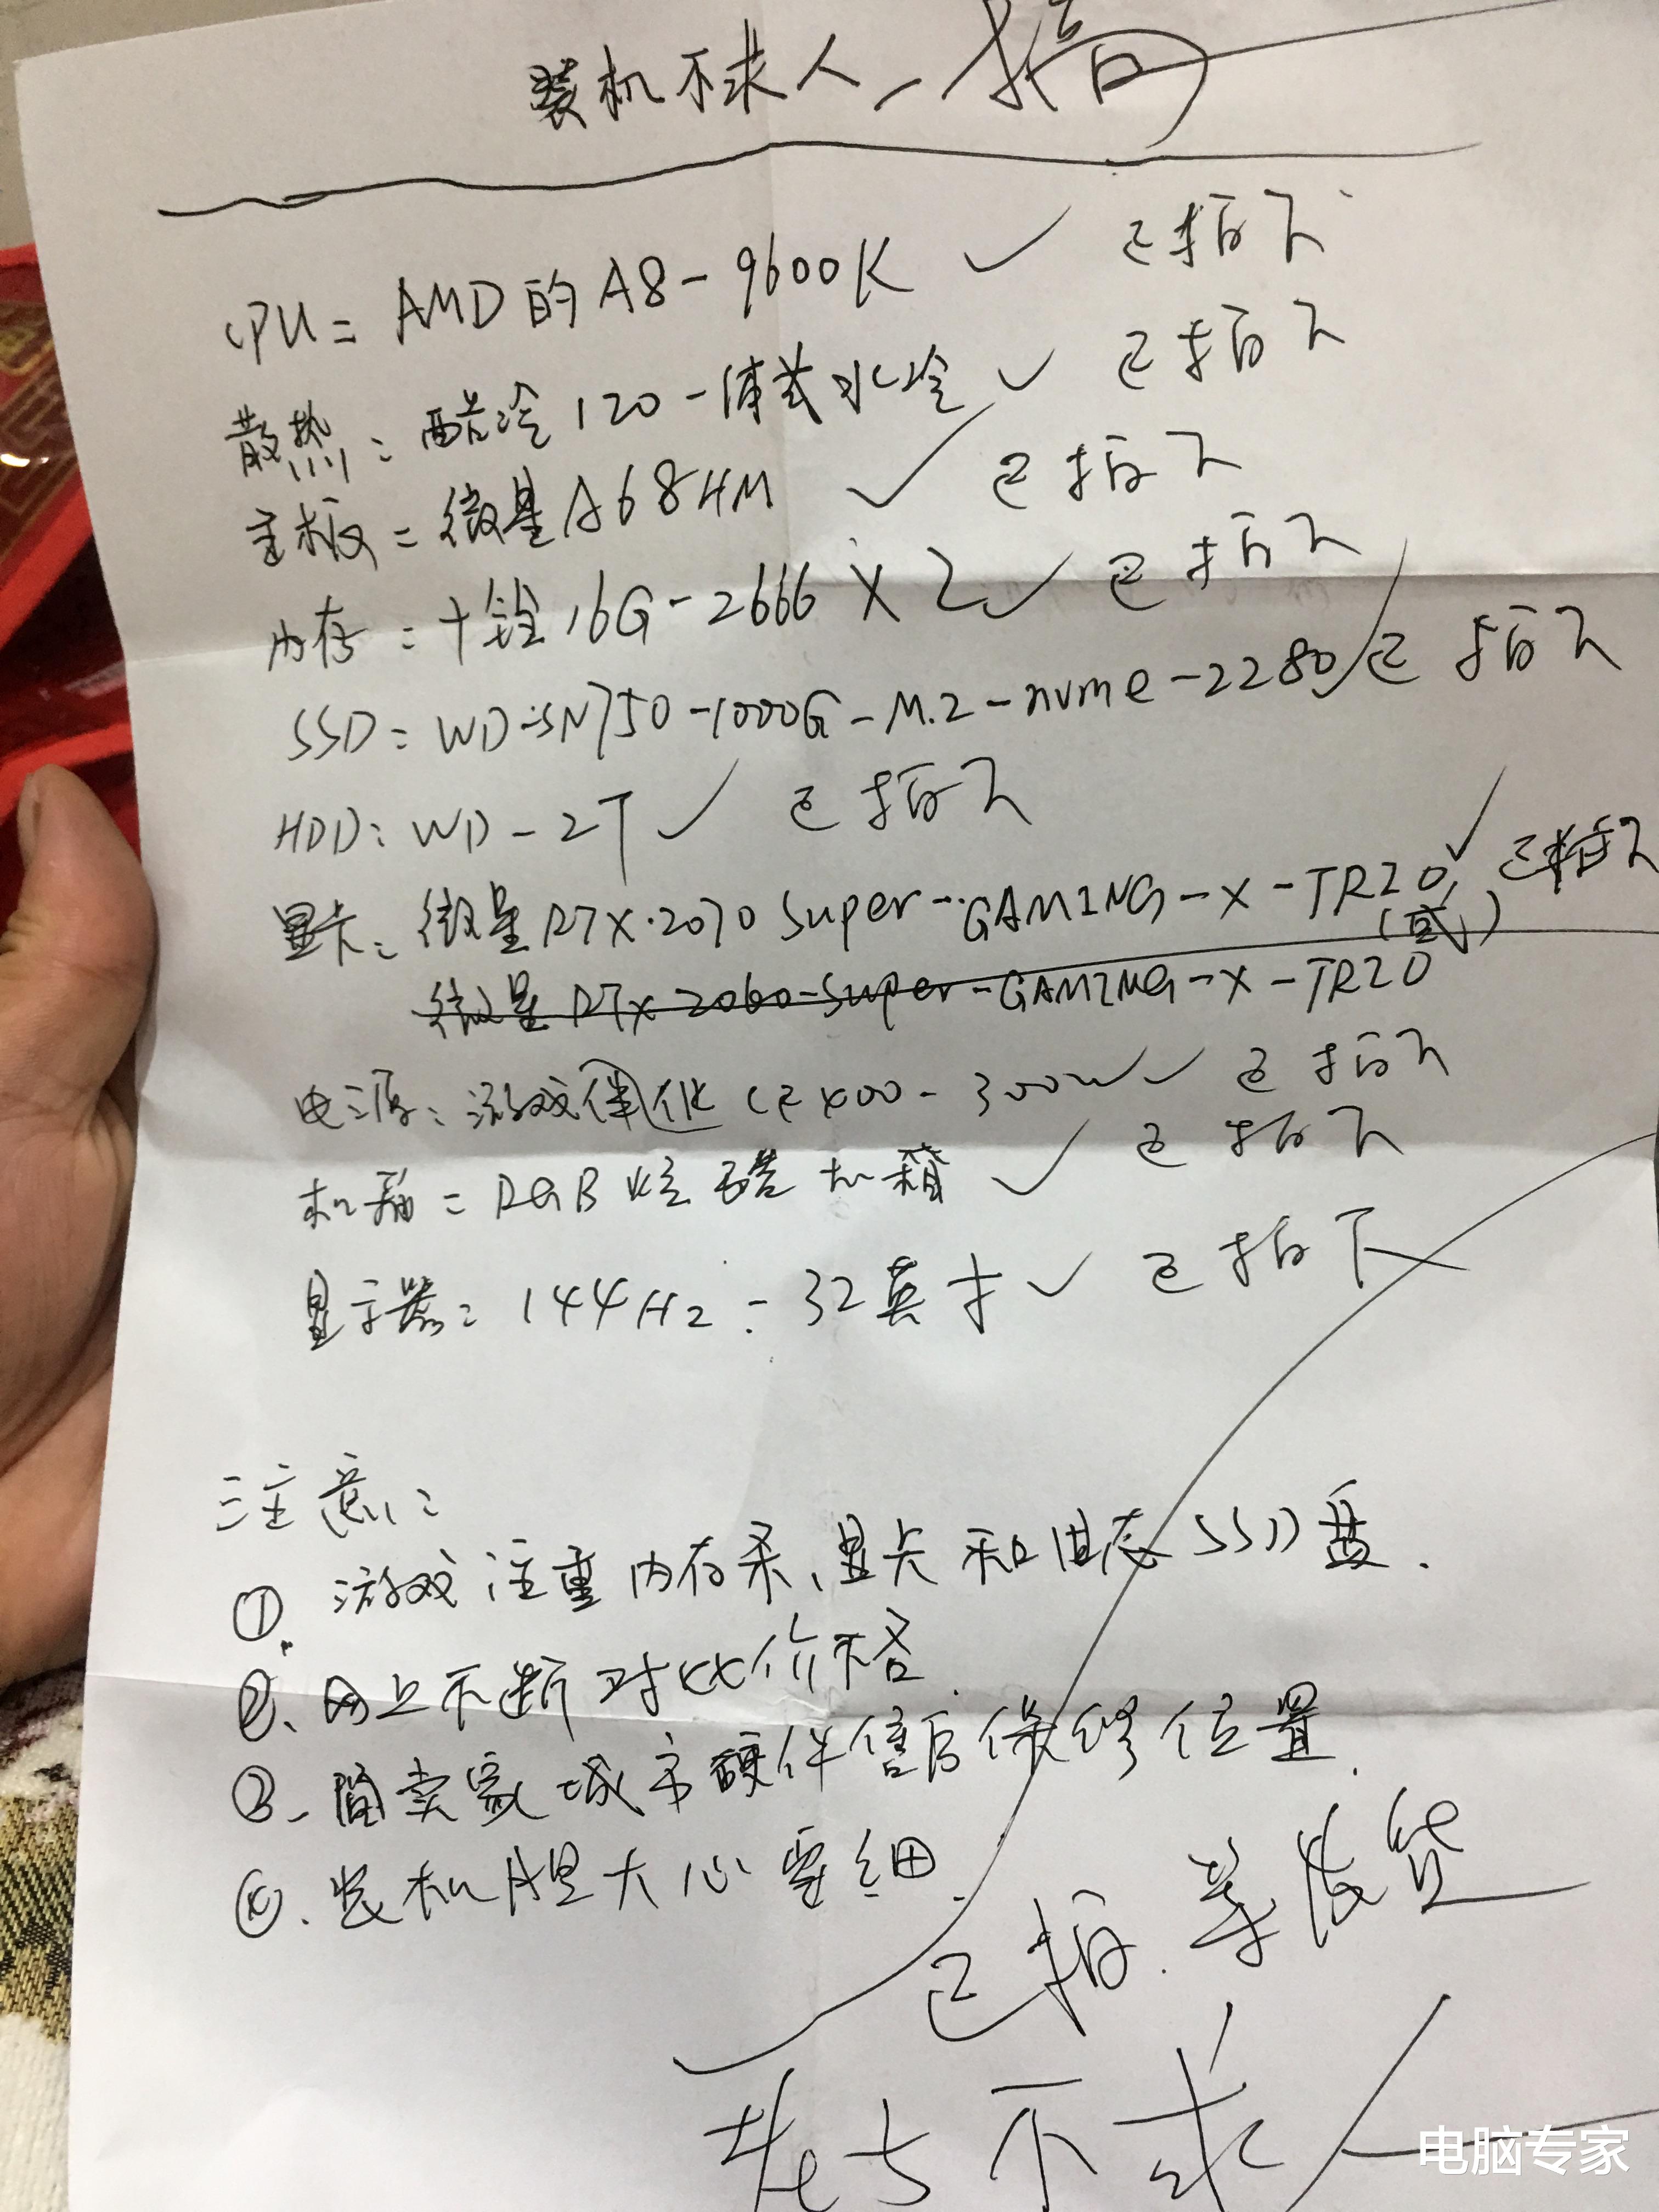 装机不求人
CPU: AMD的A8-9600K ✓ 已拍下
散热: 酷冷120一体式水冷 ✓ 已拍下
主板: 微星A68HM ✓ 已拍下
内存: 十铨16G-2666 X 2 ✓ 已拍下
SSD: WD-SN750-1000G-M.2-nvme-2280 ✓ 已拍下
HDD: WD-2T ✓ 已拍下
显卡: 微星RTX.2070 Super-GAMING-X-TRIO ✓ 已拍下
(或)
微星RTX 2060-Super-GAMING-X-TRIO
电源: 游戏伴侣 400-300W ✓ 已拍下
机箱: RGB炫酷机箱 ✓ 已拍下
显示器: 144Hz-32英寸 ✓ 已拍下
注意:
①. 游戏注重内存条、显卡和固态SSD盘.
②、网上不断对比价格.
③、卖家城市硬件售后保修位置.
④、装机胆大心要细.
已拍.等发货
不求人
电脑专家